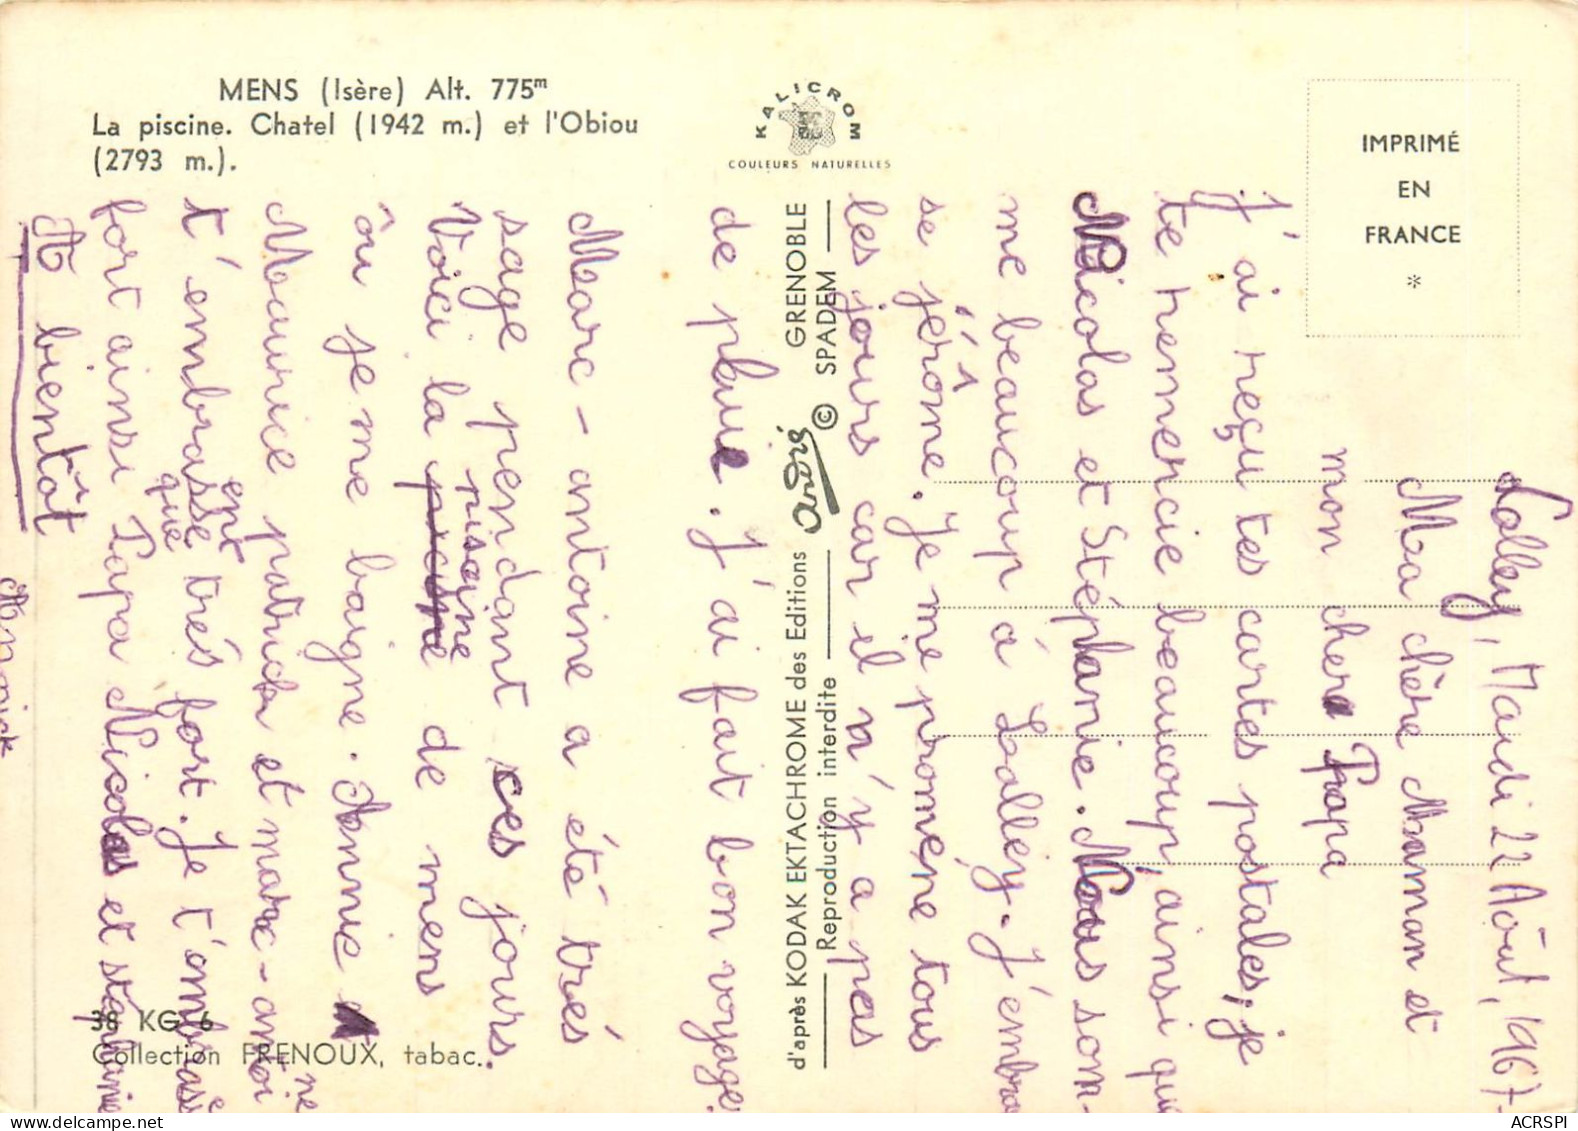 MENS (Isère) Alt. 775m
La piscine. Chatel (1942 m.) et l'Obiou
(2793 m.).
KALICROM
COULEURS NATURELLES
IMPRIMÉ
EN
FRANCE
*
GRENOBLE
© SPADEM
André
d'après KODAK EKTACHROME des Editions
Reproduction interdite
38 KG 6
Collection FRENOUX, tabac.
Lalley, Mardi 22 Août, 1967
Ma chère Maman et
mon cher Papa
J'ai reçu tes cartes postales, je
te remercie beaucoup, ainsi que
Nicolas et Stéphanie. Nous som-
me beaucoup à Lalley. J'embra
se jérôme. Je me promène tous
les jours car il n'y a pas
de pluie. J'ai fait bon voyage.
Marc-antoine a été très
sage pendant ces jours.
Voici la piscine de mens
ôu je me baigne. Annie et
Maurice patrick et marc-antoi
ne
t'embrassent très fort. Je t'embrasse
que
fort ainsi Papa Nicolas et stéphanie
A bientôt
Annick
ACRSPI